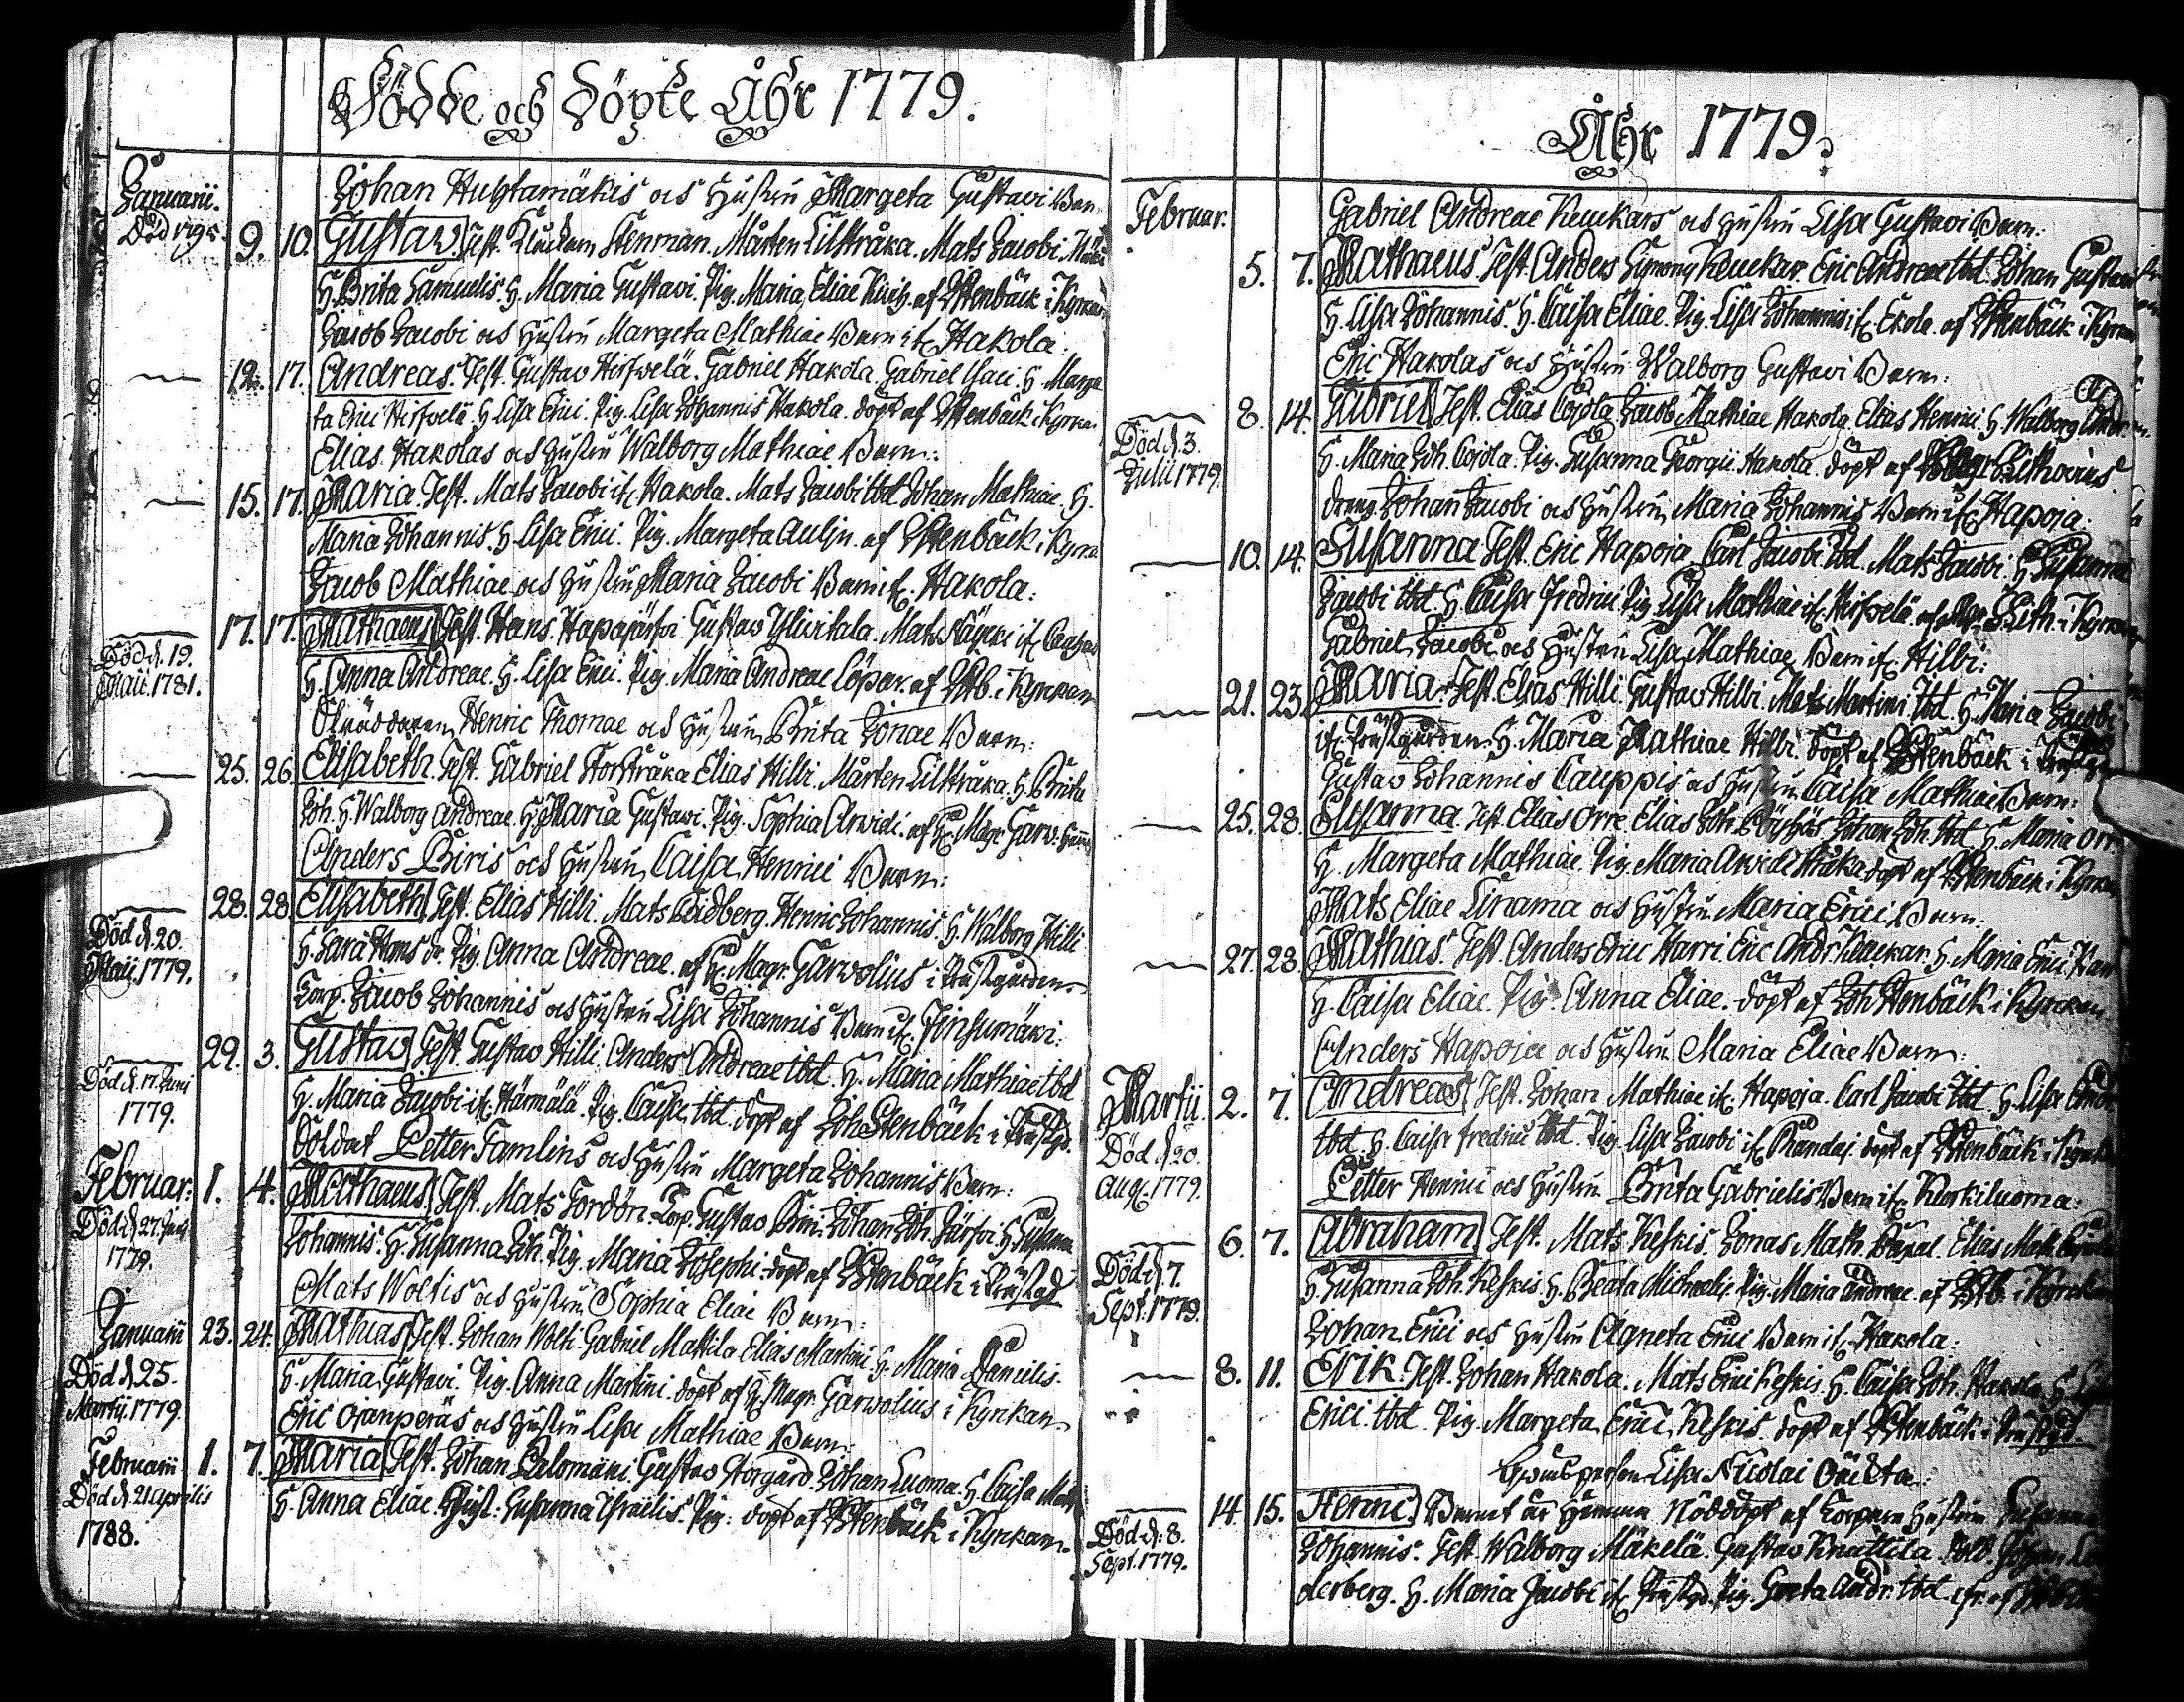 Födde och Döpte Åhr 1779.
Januarii.
Johan Huhtamäkis och Hustru Margeta Gustavi Barn
9. 10. Gustav. Test. Klåckarn Stenman. Mårten Lillstråka. Mats Jacobi
H. Brita Samuelis. H. Maria Gustavi. Pig. Maria Eliae af Stenbäck i Kyrkan
Jacob Jacobi och Hustru Margeta Mathiae Barn if. Hakola.
12. 17. Andreas. Test. Gustav Hirsvelä. Gabriel Hakola. Gabriel Isaci. H. Marge
ta Erici Hirsvelä. H. Lisa Erici. Pig. Lisa Johannis Hakola. döpt af Stenbäck i Kyrkan
Elias Hakolas och Hustru Walborg Mathiae Barn:
15. 17. Maria. Test. Mats Jacobi if. Hakola. Mats Jacobi ibd. Johan Mathiae. H.
Maria Johannis. H. Lisa Erici. Pig. Margeta Aulin. af Stenbäck i Kyrka
Jacob Mathiae och Hustru Maria Jacobi Barn if. Hakola:
17. 17. Mathaeus Test. Hans Hapajärfvi. Gustav Ylivitala. Mats if.
Död d. 19.
Maii. 1781.
H. Anna Andreae. H. Lisa Erici. Pig. Maria Andreae Löpar. af Stb. i Kyrkan
Henric Thomae och Hustru Brita Jonae Barn:
25. 26. Elisabeth. Test. Gabriel Storstråka Elias Hilli. Mårten Lillstråka. H. Brita
Joh. H. Walborg Andreae. H. Maria Gustavi. Pig. Sophia Arvidi. af H. Magr. Garv.
Anders Biris och Hustru Caisa Henrici Barn:
28. 28. Elisabeth Test. Elias Hilli. Mats Leidberg. Henric Johannis. H. Walborg Hilli
Död d. 20.
Maii. 1779.
H. Sara Hans dr. Pig. Anna Andreae. af H. Magr. Garvolius i Prästgården.
Corp. Jacob Johannis och Hustru Lisa Johannis Barn if.
29. 3. Gustav Test. Gustav Hilli. Anders Andreae ibd. H. Maria Mathiae ibd
Död d. 17. Juni
1779.
H. Maria Jacobi if. Härmälä. Pig. Caisa ibd. döpt af Joh. Stenbäck i Prästgd.
Soldat Petter Tamlins och Hustru Margeta Johannis Barn:
Februar: 1. 4. Mathaeus. Test. Mats Tordön. Corp. Gustav Johan Joh. Järfvi. H. Susanna
Död d. 27.
1779.
Johannis. H. Susanna Joh. Pig. Maria Josephi. döpt af Stenbäck i Prästgd
Mats Woltis och Hustru Sophia Eliae Barn:
Januarii 23. 24. Mathias Test. Johan Wolti. Gabriel Mattila Elias Martini. H. Maria Danielis.
Död d 25.
Martii. 1779.
H. Maria Gustavi. Pig. Anna Martini. döpt af H. Magr. Garvolius i Kyrkan
Eric Ojanperäs och Hustru Lisa Mathiae Barn:
Februarii 1. 7. Maria Test. Johan Salomäki. Gustav Storgård. Johan Luoma. H. Caisa
Död d. 21 aprilis
1788.
H. Anna Eliae. Susanna Israelis. Pig: döpt af Stenbäck i Kyrkan.
Åhr 1779.
Februar.
Gabriel Andreae Keuckars och Hustru Lisa Gustavi Barn:
5. 7. Mathaeus Test. Anders Simons Keuckar. Eric Andreae ibd. Johan Gustavi
H. Lisa Johannis. H. Caisa Eliae. Pig. Lisa Johannis if. Ekola. af Stenbäck i Kyrkan
Eric Hakolas och Hustru Walborg Gustavi Barn:
8. 14. Gabriel Test. Elias Cojola Jacob Mathiae Hakola. Elias Henrici. H. Walborg Andr.
Död d. 3.
Julii 1779.
H. Maria Joh. Cojola. Pig. Susanna Georgii Hakola. döpt af Magr. Lithovius
dreng. Johan Jacobi och Hustru Maria Johannis Barn if. Hapoja:
10. 14. Susanna Test. Eric Hapoja. Carl Jacobi ibd. Mats Jacobi. H. Susanna
Jacobi ibd. H. Caisa Fredrici Pig. Lisa Mathiae if. Hirsvelä. af Mgr. Lith. i Kyrkan
Gabriel Jacobi och Hustru Lisa Mathiae Barn if. Hilli:
21. 23. Maria. Test. Elias Hilli Gustav Hilli. Mats Martini ibd. H. Maria Jacobi
if. Prästgården. H. Maria Mathiae Hilli. döpt af Stenbäck i
Gustav Johannis Cauppis och Hustru Caisa Mathiae Barn:
25. 28. Susanna. Test. Elias Orre. Elias Joh. Johan Joh. ibd. H. Maria Orr
H. Margeta Mathiae. Pig. Maria Arvidi Stråka döpt af Stenbäck i Kyrkan
Mats Eliae Linama och Hustru Maria Erici Barn:
27. 28. Mathias. Test. Anders Erici Harri Eric Andr. Keuckar. H. Maria Erici Harr
H. Caisa Eliae. Pig. Anna Eliae. döpt af Joh. Stenbäck i Kyrkan
Anders Hapoja och Hustru Maria Eliae Barn:
Martii. 2. 7. Andreas Test. Johan Mathiae if. Hapoja. Carl Jacobi ibd H. Lisa
Död d 20.
Aug. 1779.
ibd H. Caisa Fredrici ibd. Pig. Lisa Jacobi if. döpt af Stenbäck i
Petter Henrici och Hustru Brita Gabrielis Barn if. Korkiluoma:
6. 7. Abraham Test. Mats Keskis. Jonas Math. Elias Math.
Död d. 7.
Sept. 1779.
H. Susanna Joh. Keskis. H. Beata Michaelis. Pig. Maria Andreae. af Stb. i Kyrkan
Johan Erici och Hustru Agneta Erici Barn if. Hakola:
8. 11. Erik. Test. Johan Hakola. Mats Erici Keskis. H. Caisa Joh. Hakola.
Erici ibd. Pig. Margeta Erici Keskis. döpt af Stenbäck i Prästgd.
Lisa Nicolai
14. 15. Henric. Barnet är hemma Nöddöpt af Corporn Hustru Susanna
Död d. 8.
Sept. 1779.
Johannis. Test. Walborg Mäkelä. Gustav Knuttila. Sold. Johan
derberg. H. Maria Jacobi if. Prästgd. Pig. Greta Andr. ibd.